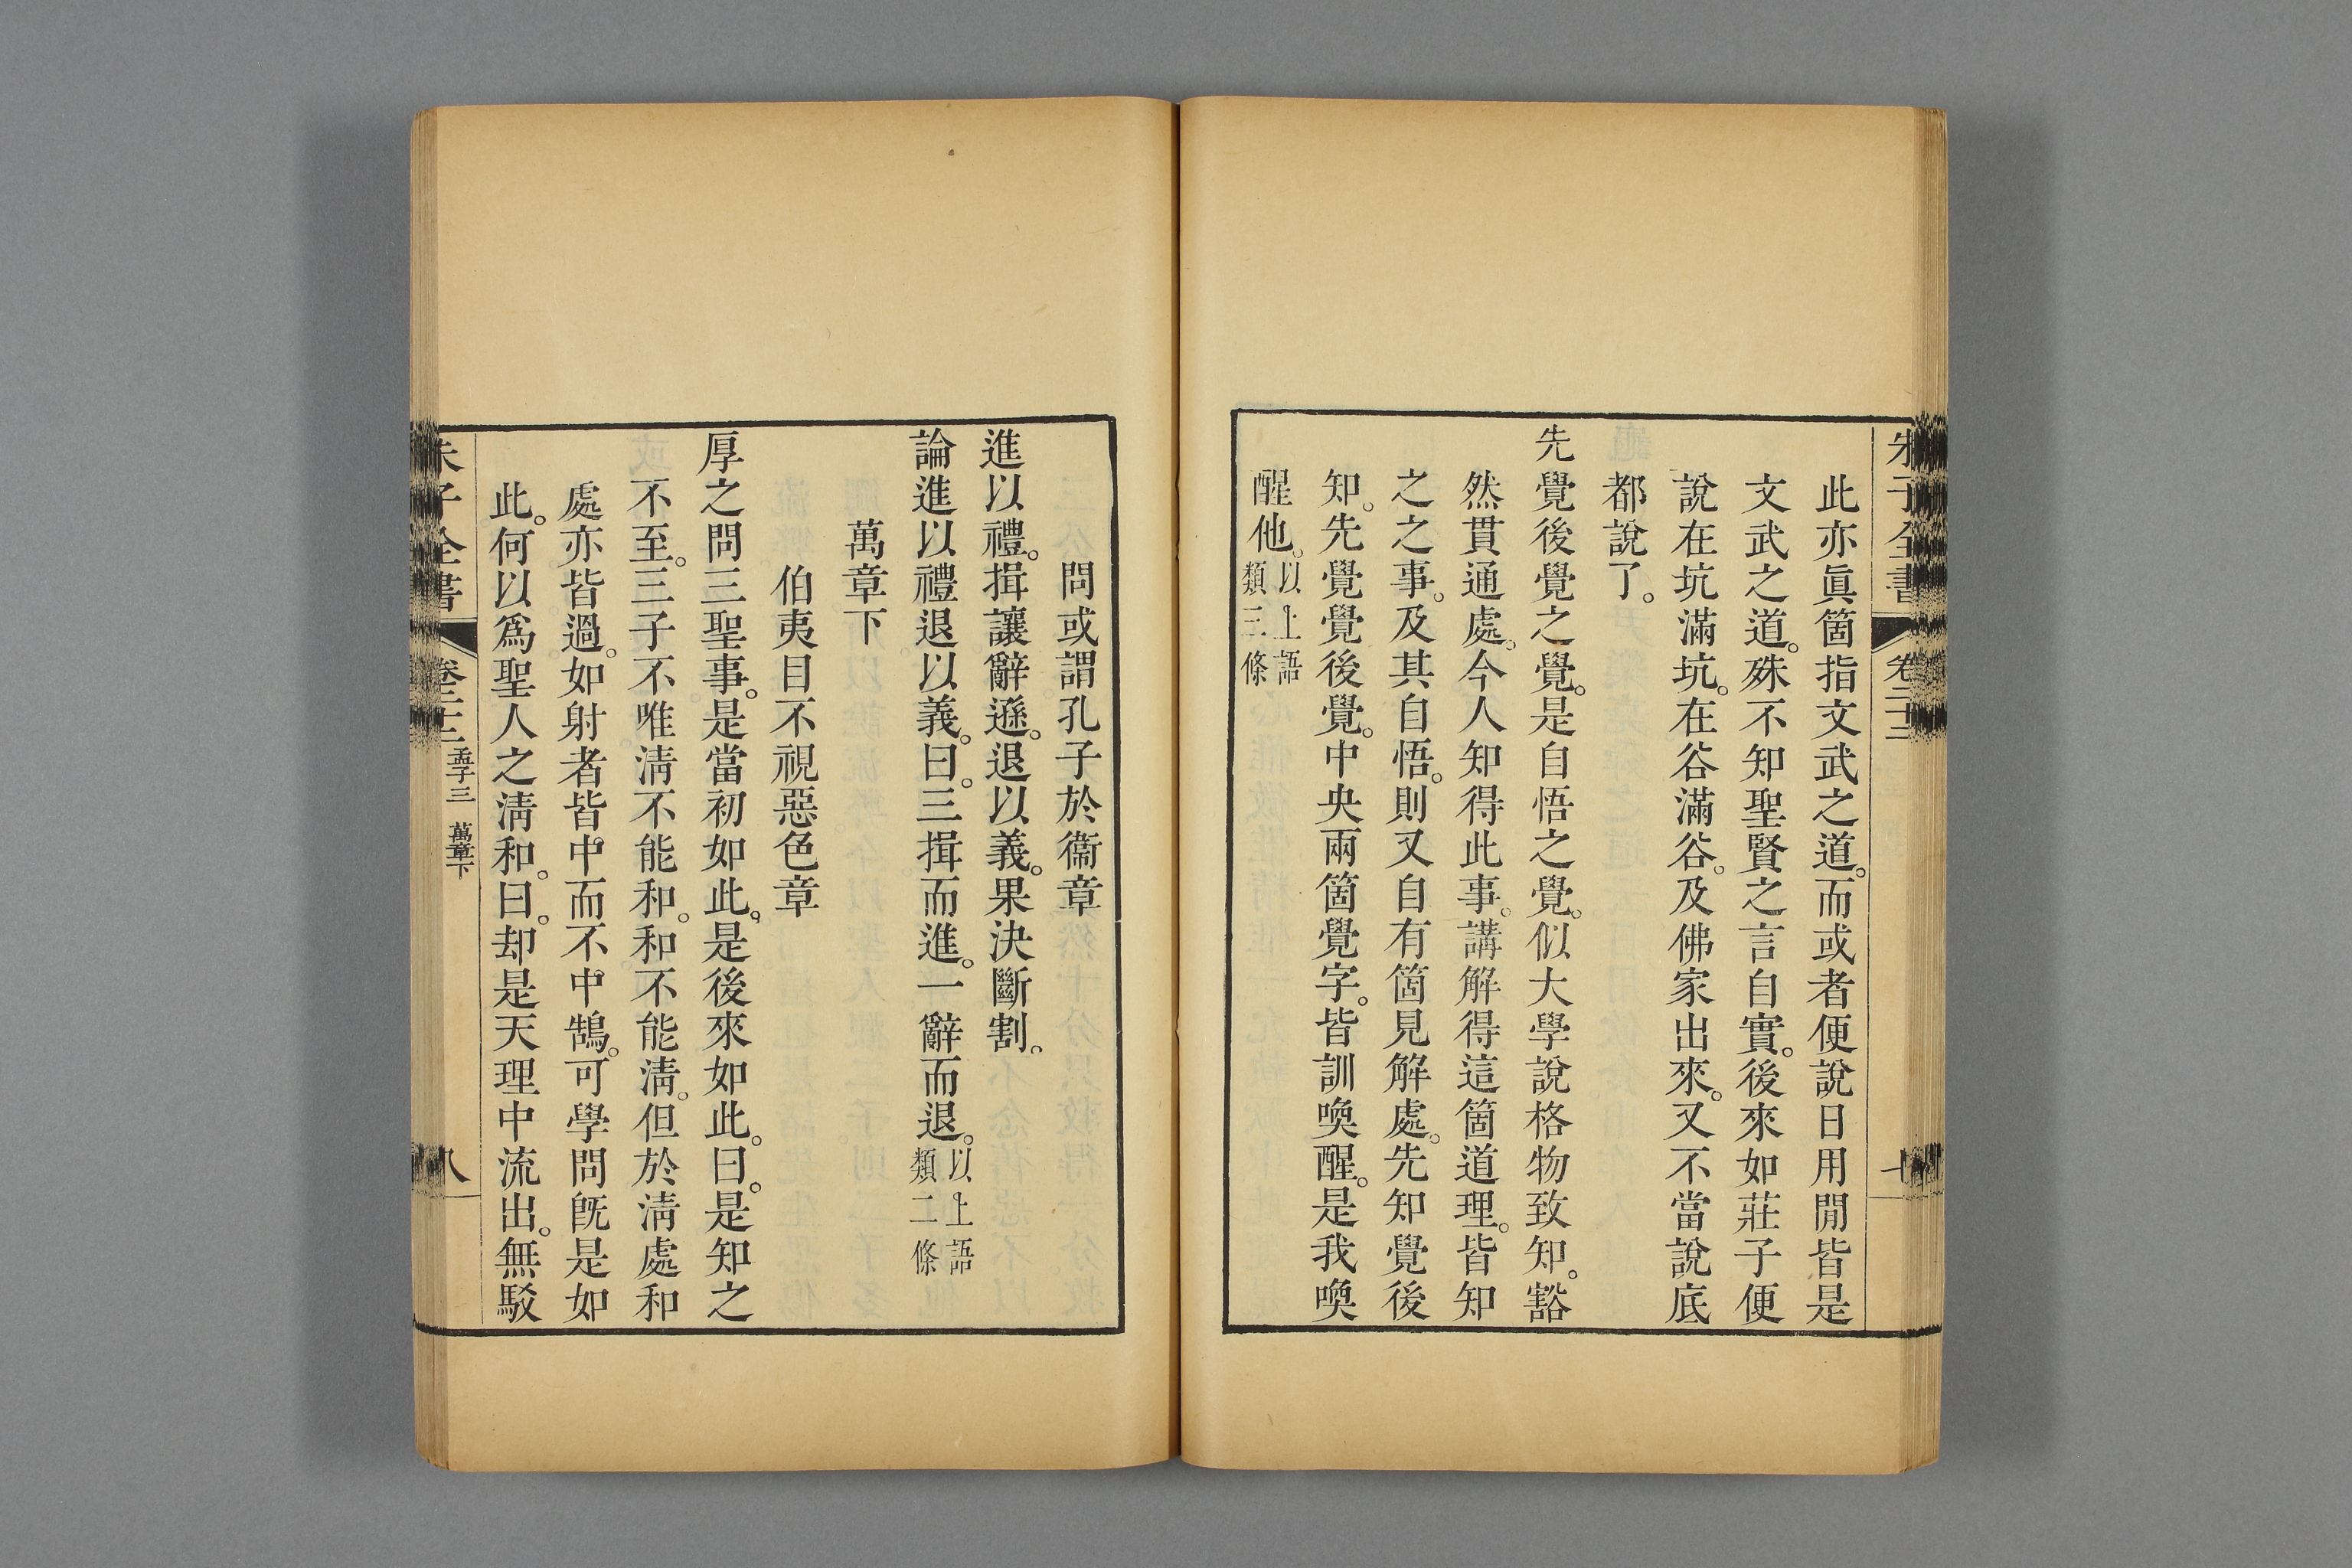 朱子全書 卷二十三
此亦眞箇指文武之道。而或者便說日用閒皆是
文武之道。殊不知聖賢之言自實。後來如莊子便
說在坑滿坑。在谷滿谷。及佛家出來。又不當說底
都說了。
先覺後覺之覺。是自悟之覺。似大學說格物致知。豁
然貫通處。今人知得此事。講解得這箇道理。皆知
之之事。及其自悟。則又自有箇見解處。先知覺後
知。先覺覺後覺。中央兩箇覺字。皆訓喚醒。是我喚
醒他。以上語類三條
問或謂孔子於衞章
進以禮。揖讓辭遜。退以義。果決斷割。
論進以禮退以義。曰。三揖而進。一辭而退。以上語類二條
萬章下
伯夷目不視惡色章
厚之問三聖事。是當初如此。是後來如此。曰。是知之
不至。三子不唯淸不能和。和不能淸。但於淸處和
處亦皆過。如射者皆中而不中鵠。可學問旣是如
此。何以爲聖人之淸和。曰。却是天理中流出。無駁
朱子全書 卷二十三 孟子三 萬章下 八